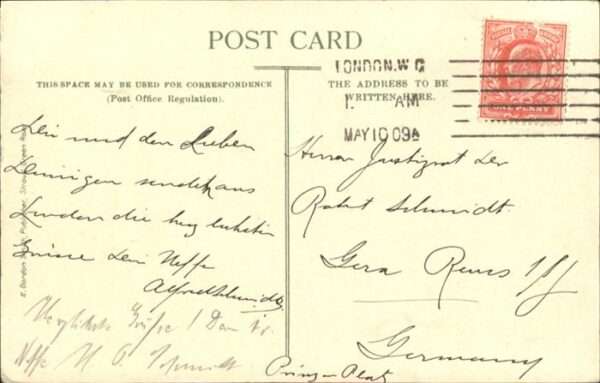 POST CARD
THIS SPACE MAY BE USED FOR CORRESPONDENCE
(Post Office Regulation).
THE ADDRESS TO BE
WRITTEN HERE.
LONDON.W.C
1. AM
MAY 10 09
Dir und den Lieben
Deinigen sendet aus
London die herzlichsten
Grüsse Dein Neffe
Alfred Schmidt
Herzliche Grüsse! Dein
Neffe H. O. Schmidt
Herrn Justizrat Dr
Robert Schmidt
Gera Reuss
Germany